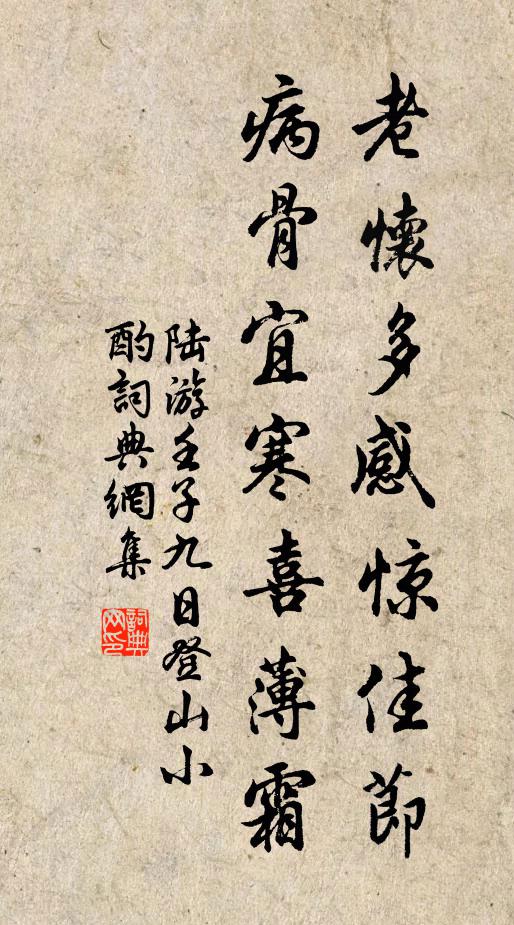 老懷多感惊佳節
病骨宜寒喜薄霜
陆游壬子九日登山小
酌詞典網集
詞典
网印